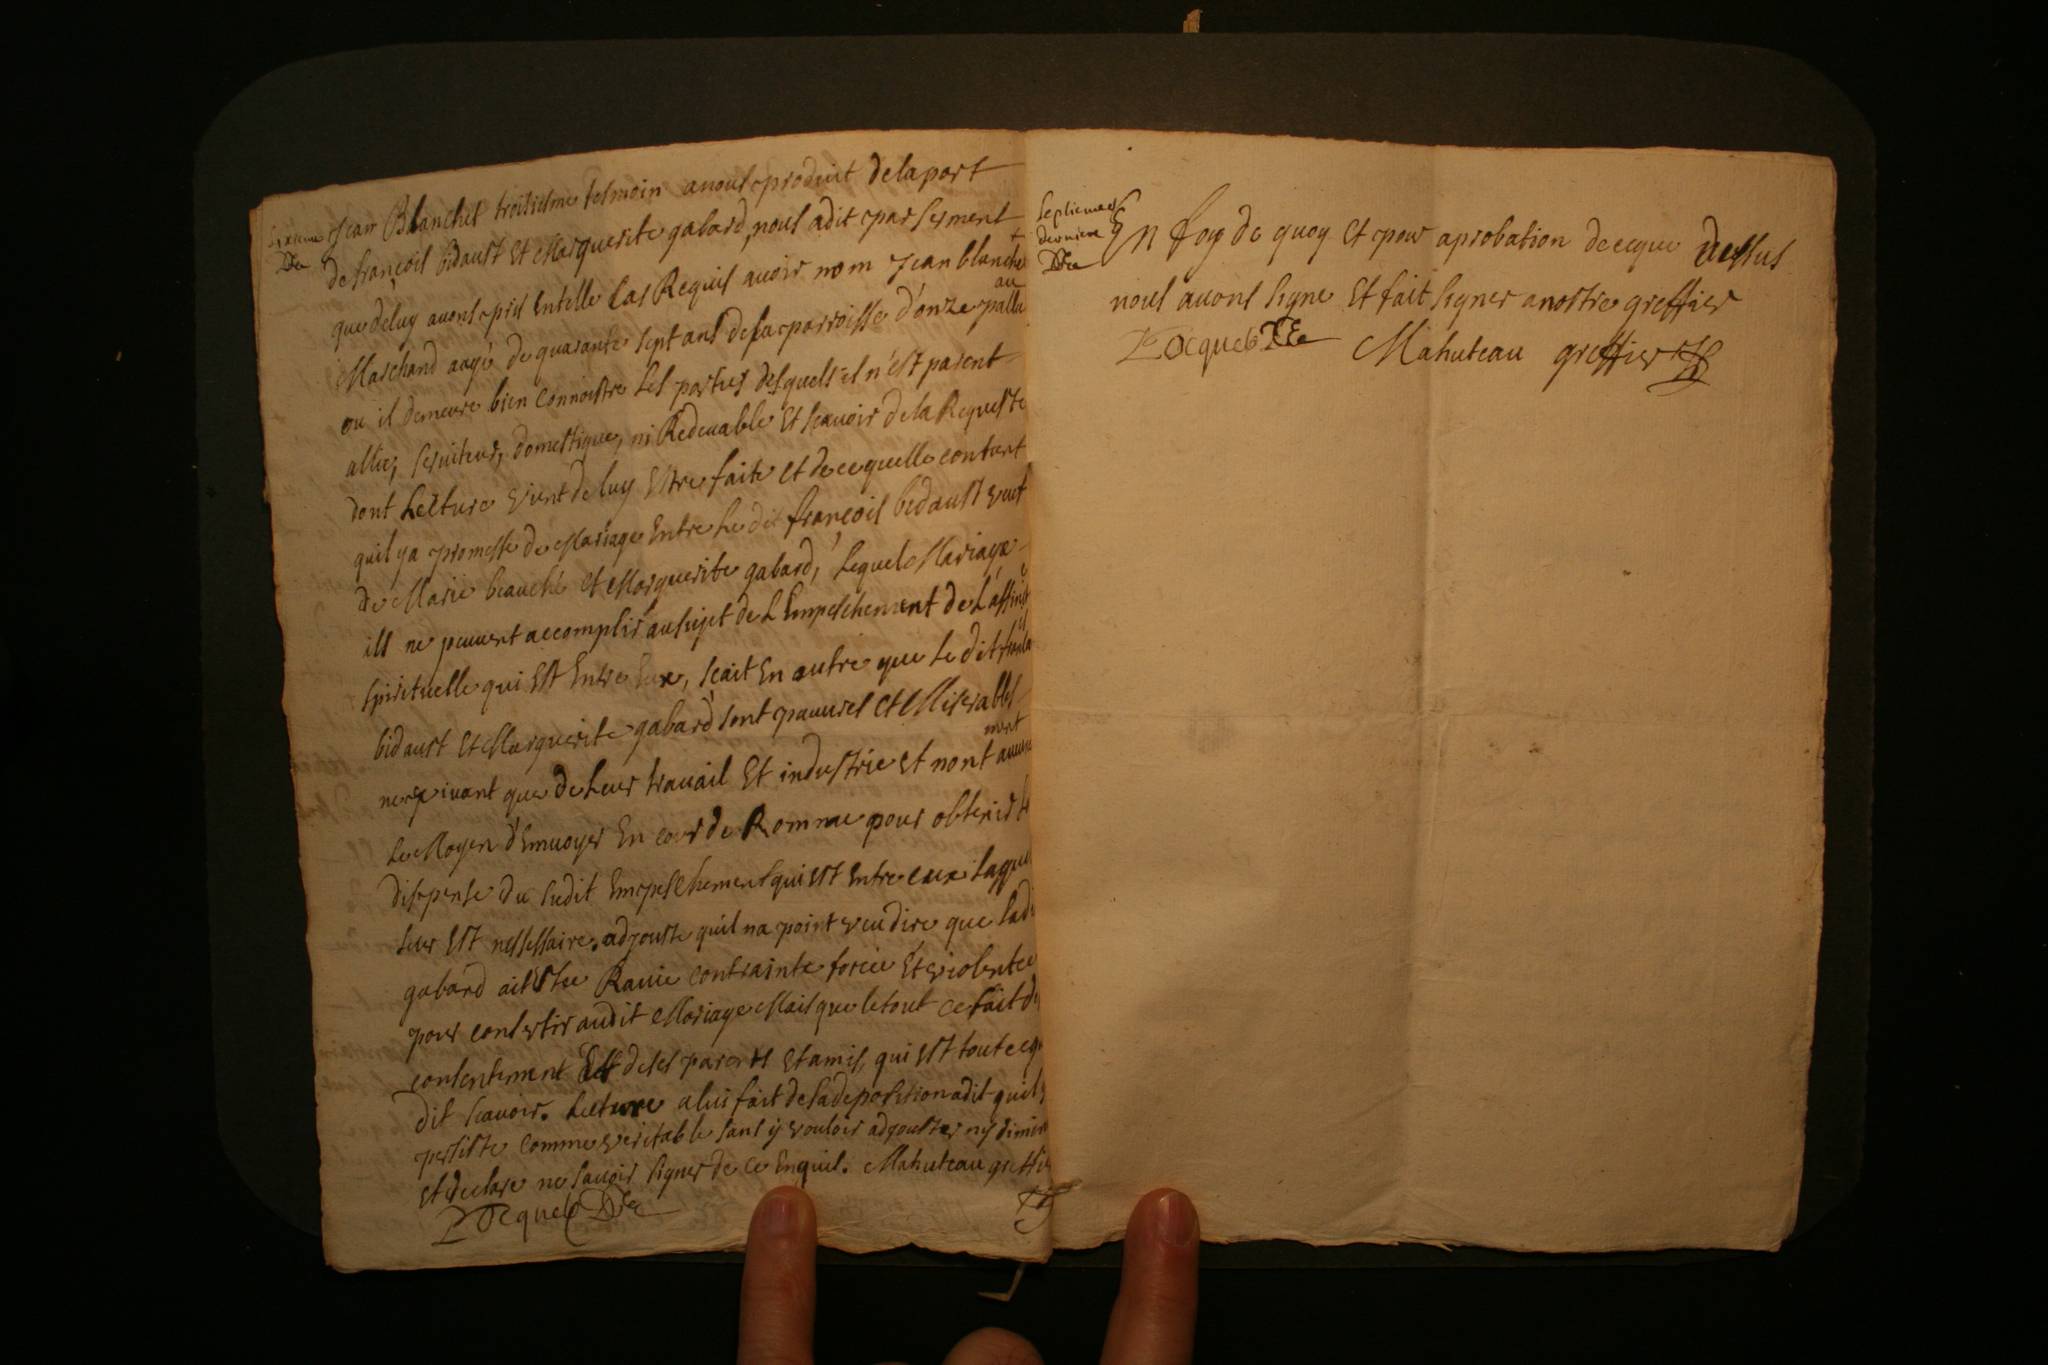 sixieme
Jean Blanchet troisiesme tesmoin a nous produit de la part
de françois bidaust et Marguerite gabard, nous a dit par serment
que de luy avons pris en telle cas Requis avoir nom Jean blanchet
Marchand aagé de quarante sept ans de sa parroisse d'onze pallu
au
ou il demeure bien connoistre Les parties desquels il n'est parent
allié, serviteur, domestique, ni Redevable Et scavoir de la Requeste
dont Lecture vient de luy Estre faite et de ce quelle contient
quil y a promesse de Mariage Entre Le dit françois bidaust veuf
de Marie beauché et Marguerite gabard, Lequel Mariage
ils ne peuvent accomplir au sujet de L'Empeschement de L'affinité
spirituelle qui Est Entre Eux, scait En outre que Le dit
bidaust Et Marguerite gabard sont pauvres et Miserables
ne vivant que de Leur travail Et industrie et n'ont aucune
ment
Le Moyen d'Envoyer En cour de Romme pour obtenir
dispense du sudit Empeschement qui est Entre eux Laque
leur Est nessessaire. adjouste quil n'a point veu dire que ladi
gabard ait Este Ravie contrainte forcée Et violentee
pour consentir audit Mariage Mais que le tout ce fait d
consentement de ses parents et amis, qui est tout ce q
dit scavoir. Lecture a luis fait de sa deposition a dit quil y
persiste comme veritable sans y vouloir adjouster ny dimin
Et declare ne savoir signer de ce Enquis. Mahuteau greffie
septieme et
derniere
En foy de quoy et pour aprobation de ce que dessus
nous avons signé Et fait signer a nostre greffier
Mahuteau greffier